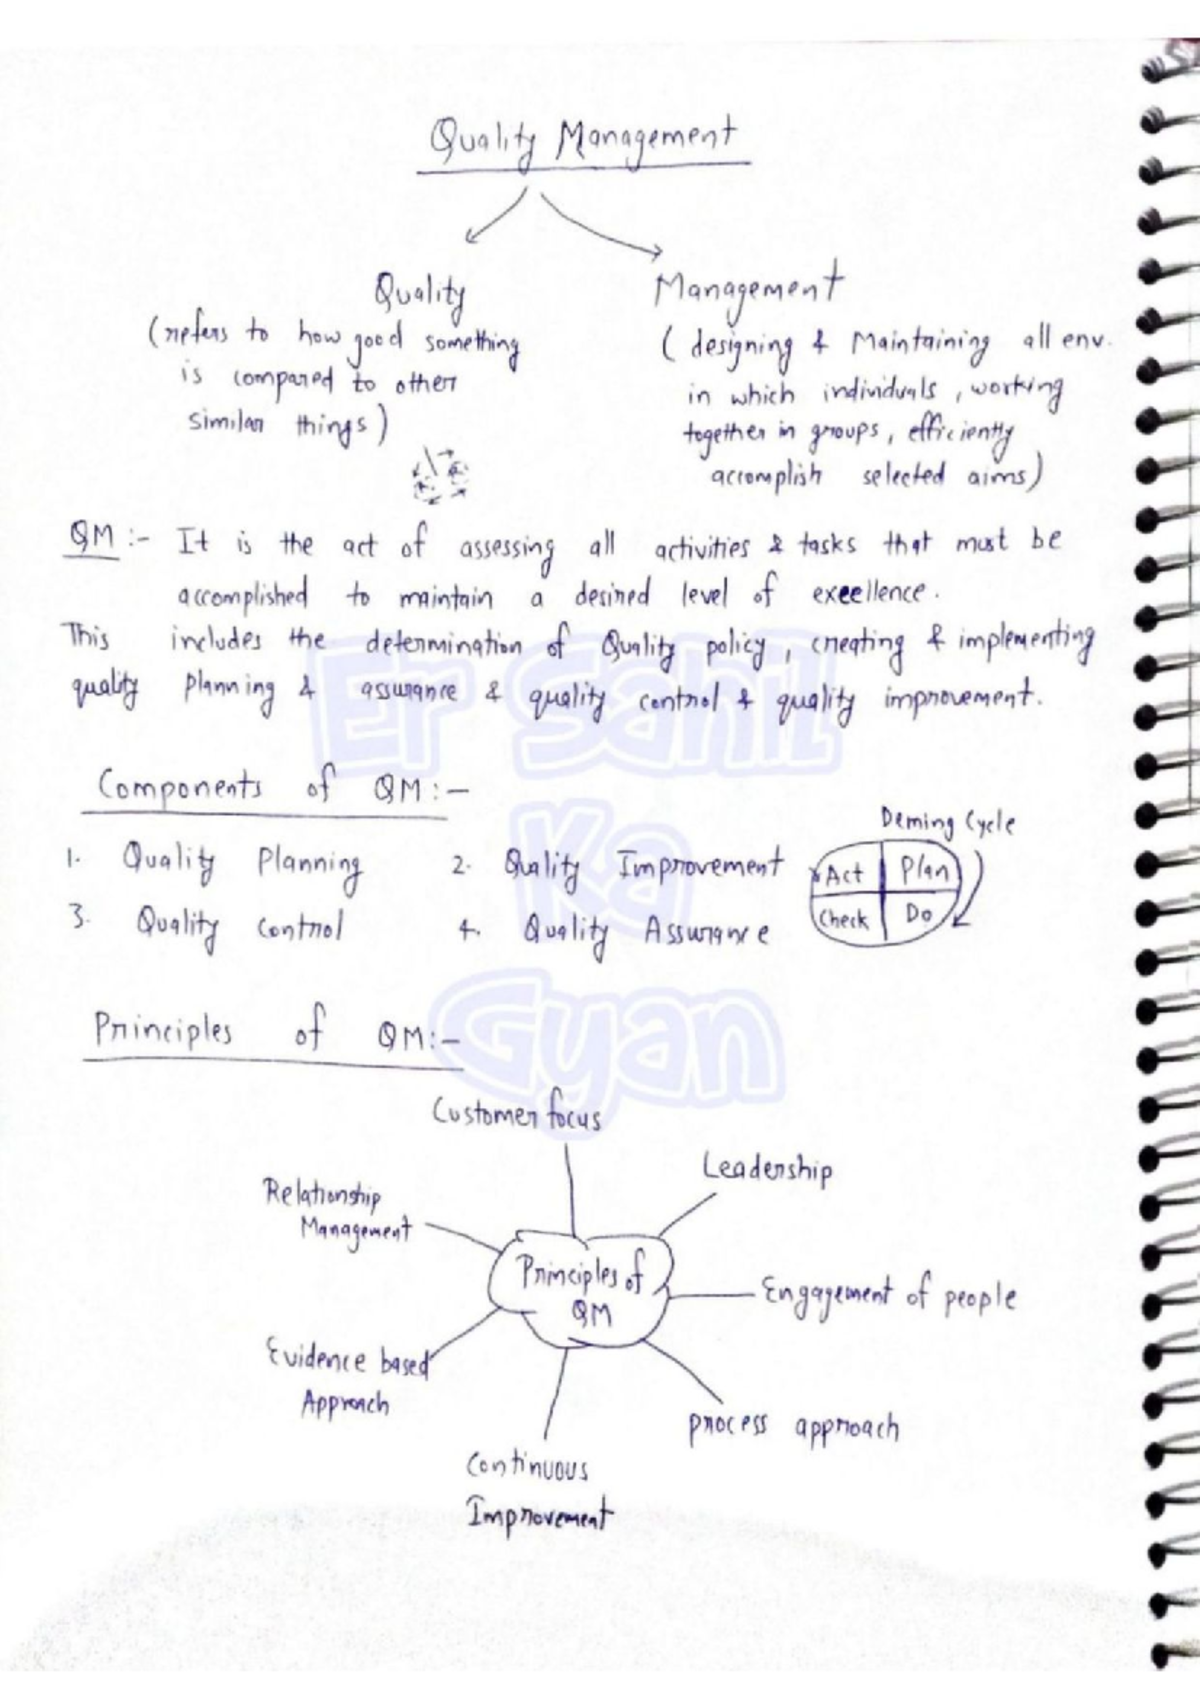 Quality Management
Quality
(refers to how good something
is compared to other
similar things)
Management
(designing & Maintaining all env.
in which individuals, working
together in groups, efficiently
accomplish selected aims)
QM :- It is the act of assessing all activities & tasks that must be
accomplished to maintain a desired level of excellence.
This includes the determination of Quality policy, creating & implementing
quality planning & assurance & quality control & quality improvement.
Components of QM:-
1. Quality Planning 2. Quality Improvement
3. Quality control 4. Quality Assurance
Deming Cycle
Act Plan
Check Do
Principles of QM:-
Customer focus
Leadership
Relationship
Management
Principles of
QM
Engagement of people
Evidence based
Approach
process approach
Continuous
Improvement
Er Sahil
Ka
Gyan